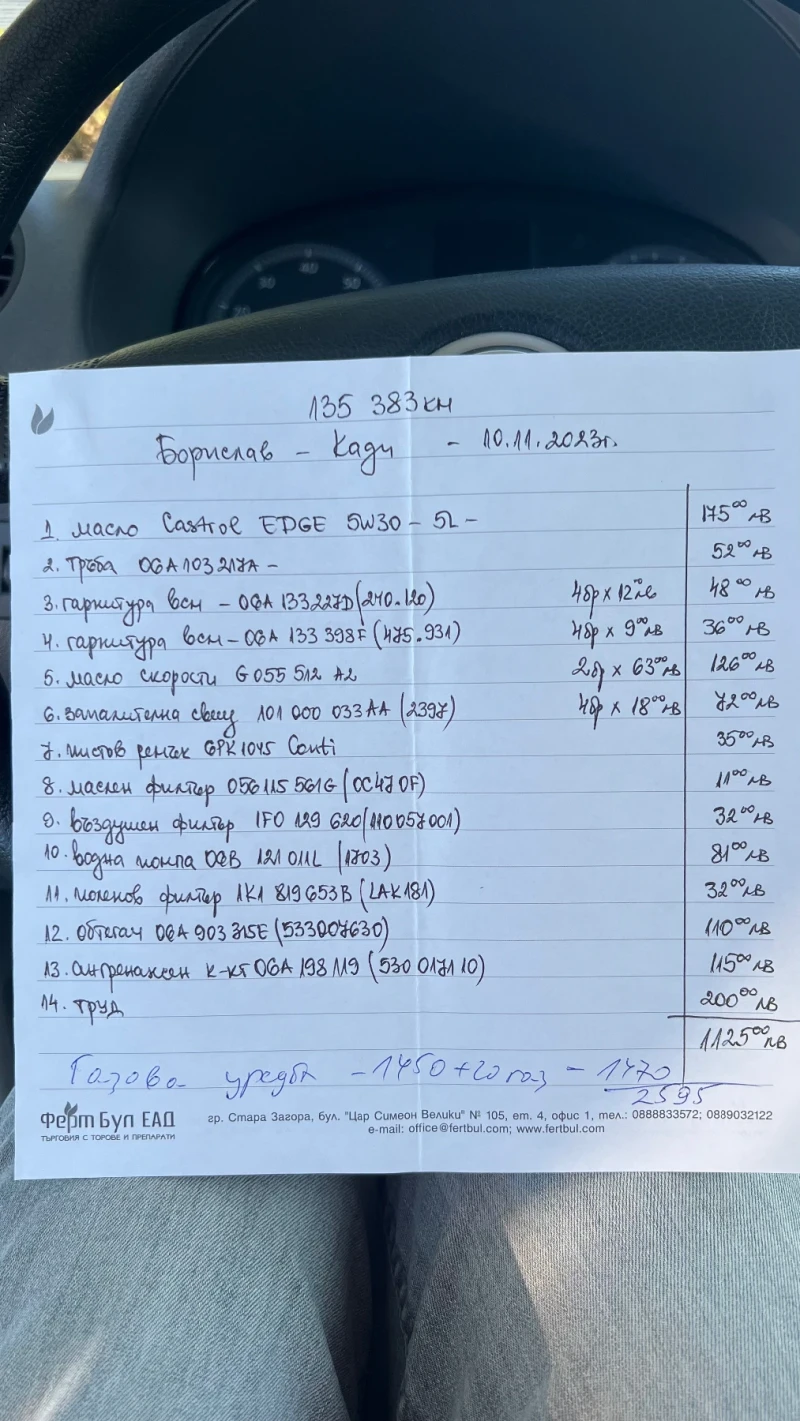 135 383км
Борислав - Кади - 10.11.2023г.
1. масло Castrol EDGE 5W30 - 5L - 175⁰⁰ лв
2. тръба 06A 103 217A - 52⁰⁰ лв
3. гарнитура всм - 06A 133227D (240.120) 4бр x 12⁰⁰лв 48⁰⁰ лв
4. гарнитура всм - 06A 133 398F (475.931) 4бр x 9⁰⁰лв 36⁰⁰ лв
5. масло скорости G 055 512 A2 2бр x 63⁰⁰ лв 126⁰⁰ лв
6. запалителна свещ 101 000 033 AA (2397) 4бр x 18⁰⁰ лв 72⁰⁰ лв
7. пистов ремък 6PK1045 Conti 35⁰⁰ лв
8. маслен филтър 056115 561G (OC470F) 11⁰⁰ лв
9. въздушен филтър 1F0 129 620 (110057001) 32⁰⁰ лв
10. водна помпа 06B 121 011L (1703) 81⁰⁰ лв
11. поленов филтър 1K1 819 653B (LAK181) 32⁰⁰ лв
12. Обтегач 06A 903 315E (533007630) 110⁰⁰ лв
13. Ангренажен к-кт 06A 198 119 (530 0171 10) 115⁰⁰ лв
14. труд 200⁰⁰ лв
1125⁰⁰ лв
Газова уредба - 1450 + 20 газ - 1470
2595
Ферт Бул ЕАД
ТЪРГОВИЯ С ТОРОВЕ И ПРЕПАРАТИ
гр. Стара Загора, бул. "Цар Симеон Велики" № 105, ет. 4, офис 1, тел.: 0888833572; 0889032122
e-mail: office@fertbul.com; www.fertbul.com